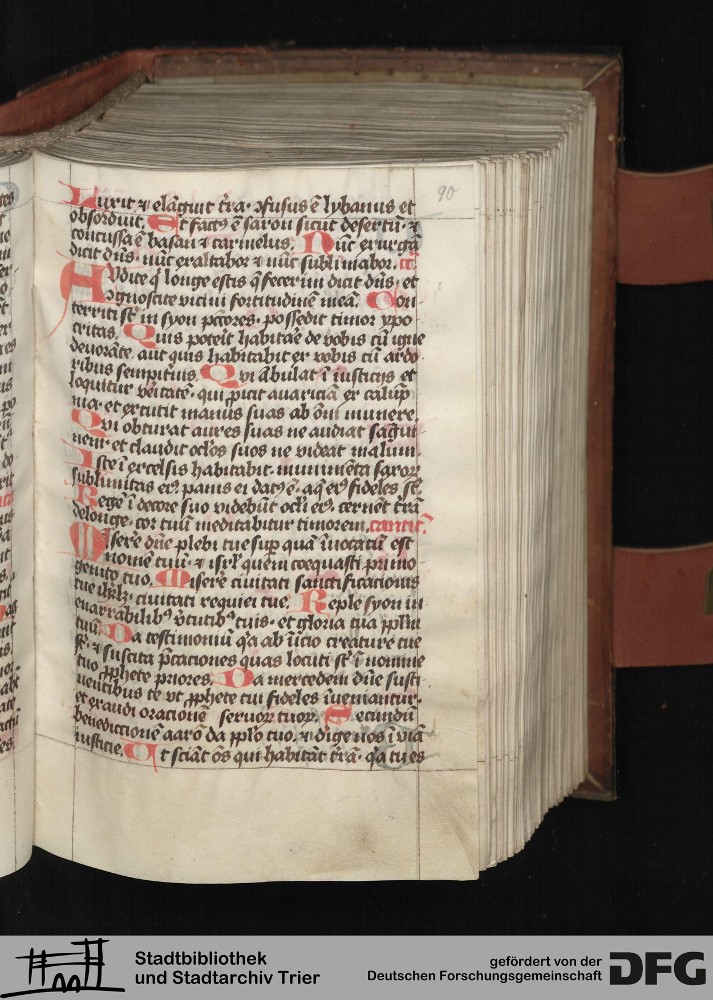 90
Luxit ⁊ elāguit t̄ra· ꝯfusus ē lybanus et
obsorduit. Et factꝰ ē saron sicut desertū· ⁊
concussa ē basan ⁊ carmelus. Nūc exurgā
dicit dn̄s· nūc exaltabor ⁊ nūc sublimabor. c̄.
Audite q̄ longe estis q̄ fecerim dicit dn̄s· et
ꝯgnoscite vicini fortitudinē meā. Con-
territi st̄ in syon pc̄cores· possedit timor ypo
critas. Quis poterit habitare de vobis cū igne
deuorāte· aut quis habitabit ex vobis cū ardo
ribus sempit̄nis. Qvi ābulat ī iusticijs et
loquitur v̄itatē· qui ꝓicit auariciā ex calūp
nia· et excutit manus suas ab ōni munere.
Qvi obturat aures suas ne audiat sāgui
nem· et claudit oc̄los suos ne videat malum.
Iste ī excelsis habitabit· munimēta saxoꝝ
sublimitas eiꝰ· panis ei datꝰ ē· aq̄ eiꝰ fideles st̄.
Regē ī decore suo videbūt oc̄li eiꝰ· cernēt t̄rā
delonge· cor tuū meditabitur timorem. cantic̄.
Misere dn̄e plebi tue suꝑ quā īuocatū est
nomē tuū· ⁊ isrl̄ quem coequasti primo
genito tuo. Miserē ciuitati sanctificacionis
tue ihrl̄z· ciuitati requiei tue. Reple syon in
enarrabilibꝰ v̄tutibꝰ tuis· et gloria tua ppl̄m
tuū. Da testimoniū q̄a ab īicio creature tue
st̄· ⁊ suscita p̄cationes quas locuti st̄ ī nomine
tuo ꝓphete priores. Da mercedem dn̄e susti
nentibus te vt ꝓphete tui fideles īueniantur·
et exaudi orationē seruoꝝ tuoꝝ. Secundū
benedictionē aarō da ppl̄o tuo· ⁊ dirige nos ī viā
iusticie. Et sciāt ōs qui habitāt t̄rā· q̄a tu es
Stadtbibliothek
und Stadtarchiv Trier
gefördert von der
Deutschen Forschungsgemeinschaft
DFG